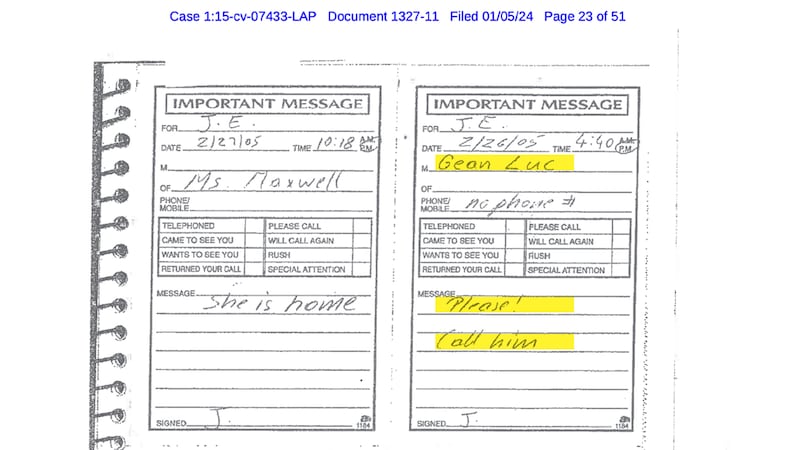 Case 1:15-cv-07433-LAP Document 1327-11 Filed 01/05/24 Page 23 of 51
IMPORTANT MESSAGE
FOR J.E.
DATE 2/27/05 TIME 10:18 A.M. P.M.
M
OF Ms. Maxwell
PHONE/
MOBILE
TELEPHONED PLEASE CALL
CAME TO SEE YOU WILL CALL AGAIN
WANTS TO SEE YOU RUSH
RETURNED YOUR CALL SPECIAL ATTENTION
MESSAGE
She is home
SIGNED J. 1184
IMPORTANT MESSAGE
FOR J.E.
DATE 2/26/05 TIME 4:40 A.M. P.M.
M Gean Luc
OF
PHONE/
MOBILE no phone #
TELEPHONED PLEASE CALL
CAME TO SEE YOU WILL CALL AGAIN
WANTS TO SEE YOU RUSH
RETURNED YOUR CALL SPECIAL ATTENTION
MESSAGE
Please!
Call him
SIGNED J. 1184